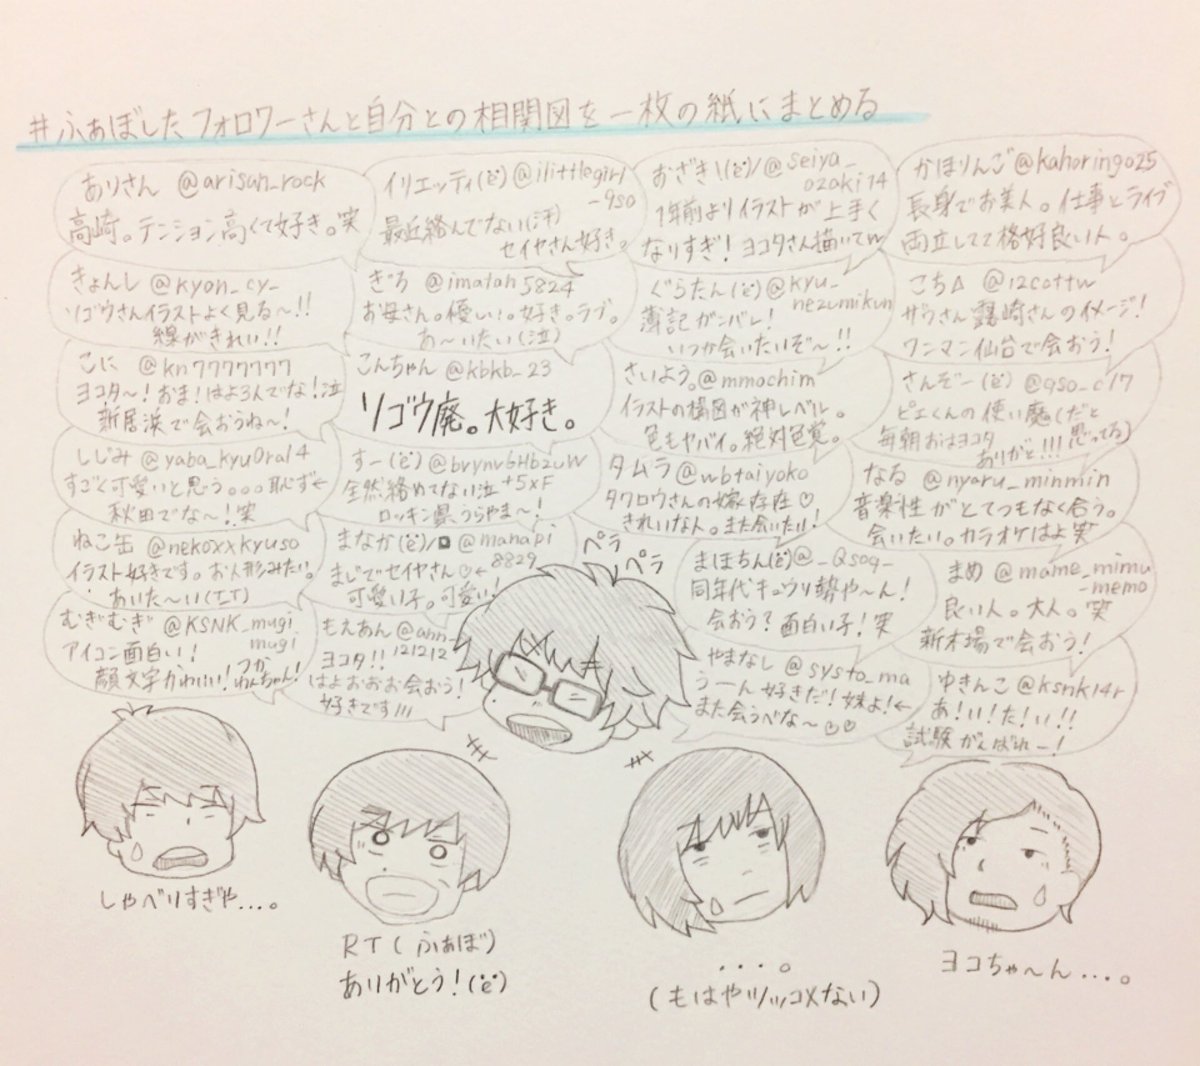 #ふぁぼしたフォロワーさんと自分との相関図を一枚の紙にまとめる
ありさん @arisan_rock
高崎。テンション高くて好き。笑
イリエッティ @ilittlegirl
-9so
最近絡んでない(汗)
セイヤさん好き。
おざき @seiya_
ozaki14
1年前よりイラストが上手く
なりすぎ! ヨコタさん描いてw
かほりんご @kahoringo25
長身でお美人。仕事とライブ
両立してて格好良い人。
きょんし @kyon_cy_
ソゴウさんイラストよく見る〜!!
線がきれい!!
ぎろ @imatan5824
お母さん。優しい。好き。ラブ。
あ〜いたい(泣)
ぐらたん @kyu_
nezumikun
簿記ガンバレ!
いつか会いたいぞ〜!!
こち△ @12cottw
ザウさん 露崎さんのイメージ!
ワンマン仙台で会おう!
こに @kn7777777
ヨコタ〜!おま!はよ3人でな!泣
新居浜で会おうね〜!
こんちゃん @kbkb_23
ソゴウ廃。大好き。
さいよう。@mmochim
イラストの構図が神レベル。
色もヤバイ。絶対色覚。
さんぞー @9so_c17
ピエくんの使い魔(だと
思ってる)
毎朝おはヨコタ
ありがと!!!
しじみ @yaba_kyu0ra14
すごく可愛いと思う。。。恥ず←
秋田でな〜!笑
すー @brynv6Hb2uW
+5xF
全然絡めてない泣
ロッキン県うらやま〜!
タムラ @wbtaiyoko
タクロウさんの嫁存在♡
きれいな人。また会いたい!
なる @nyaru_minmin
音楽性がとてつもなく合う。
会いたい。カラオケはよ 笑
ねこ缶 @nekoxxkyuso
イラスト好きです。お人形みたい。
あいた〜い(T_T)
まなか @manapi
8829
まじでセイヤさん♡←
可愛い子。可愛い!
ペラ
ペラ
まほちん @_Qsoq_
同年代キュウソ勢や〜ん!
会おう?面白い子!笑
まめ @mame_mimu
-memo
良い人。大人。笑
新木場で会おう!
むぎむぎ @KSNK_mugi
mugi
アイコン面白い!
顔文字かわいい!つかわんちゃん!
もえあん @ann_
121212
ヨコタ!!
はよおおお会おう!
好きです!!!
やまなし @systo_ma
うーん好きだ!妹よ!←
また会うべな〜♡♡
ゆきんこ @ksnk14r
あ!い!た!い!!
試験がんばれー!
しゃべりすぎや...。
RT(ふぁぼ)
ありがとう!
...。
(もはやツッコメない)
ヨコちゃ〜ん...。